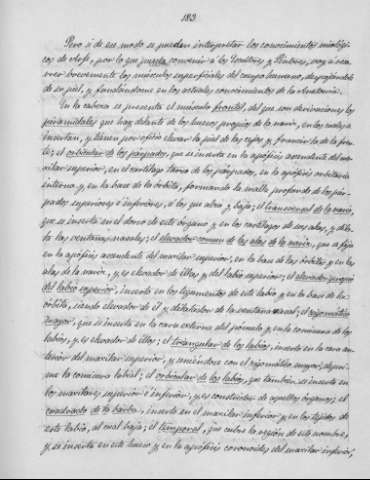 183
Pero si de ese modo se puedan interpretar los conocimientos miológi-
cos de Arfe, por lo que pueda convenir á los Escultores y Pintores, voy á reca-
rrer brevemente los músculos superficiales del cuerpo humano, despojándole
de su piel, y fundándome en los actuales conocimientos de la Anatomía.
En la cabeza se presenta el músculo frontal, del que son derivaciones los
piramidales que hay delante de los huesos propios de la nariz, en los cuales se
insertan, y tienen por oficio elevar la piel de las cejas y fruncir la de la fren-
te; el orbicular de los párpados, que se inserta en la apófisis ascendente del ma-
xilar superior, en el cartílago tarso de los párpados, en la apófisis orbitaria
interna y en la base de la órbita, formando la malla profunda de los pár-
pados superiores é inferiores, á los que abre y baja; el transversal de la nariz,
que se inserta en el dorso de este órgano y en los cartílagos de sus alas, y dila-
ta las ventanas nasales; el elevador comun de las alas de la nariz, que se fija
en la apófisis ascendente del maxilar superior, en la base de las órbitas y en las
alas de la nariz, y es elevador de ellas y del labio superior; el elevador propio
del labio superior, inserto en los tegumentos de este labio y en la base de la
órbita, siendo elevador de él y dilatador de la ventana nasal; el zigomático
mayor, que se inserta en la cara externa del pómulo y en la comisura de los
labios, y es elevador de ellos; el triangular de los labios, inserto en la cara an-
terior del maxilar superior, y uniéndose con el zigomático mayor, depri-
me la comisura labial; el orbicular de los labios, que tambien se inserta en
los maxilares superior é inferior, y es constrictor de aquellos órganos; el
cuadrado de la barba, inserto en el maxilar inferior y en los tejidos de
este labio, al cual baja; el temporal, que cubre la region de este nombre,
y se inserta en este hueso y en la apófisis coronoides del maxilar inferior,